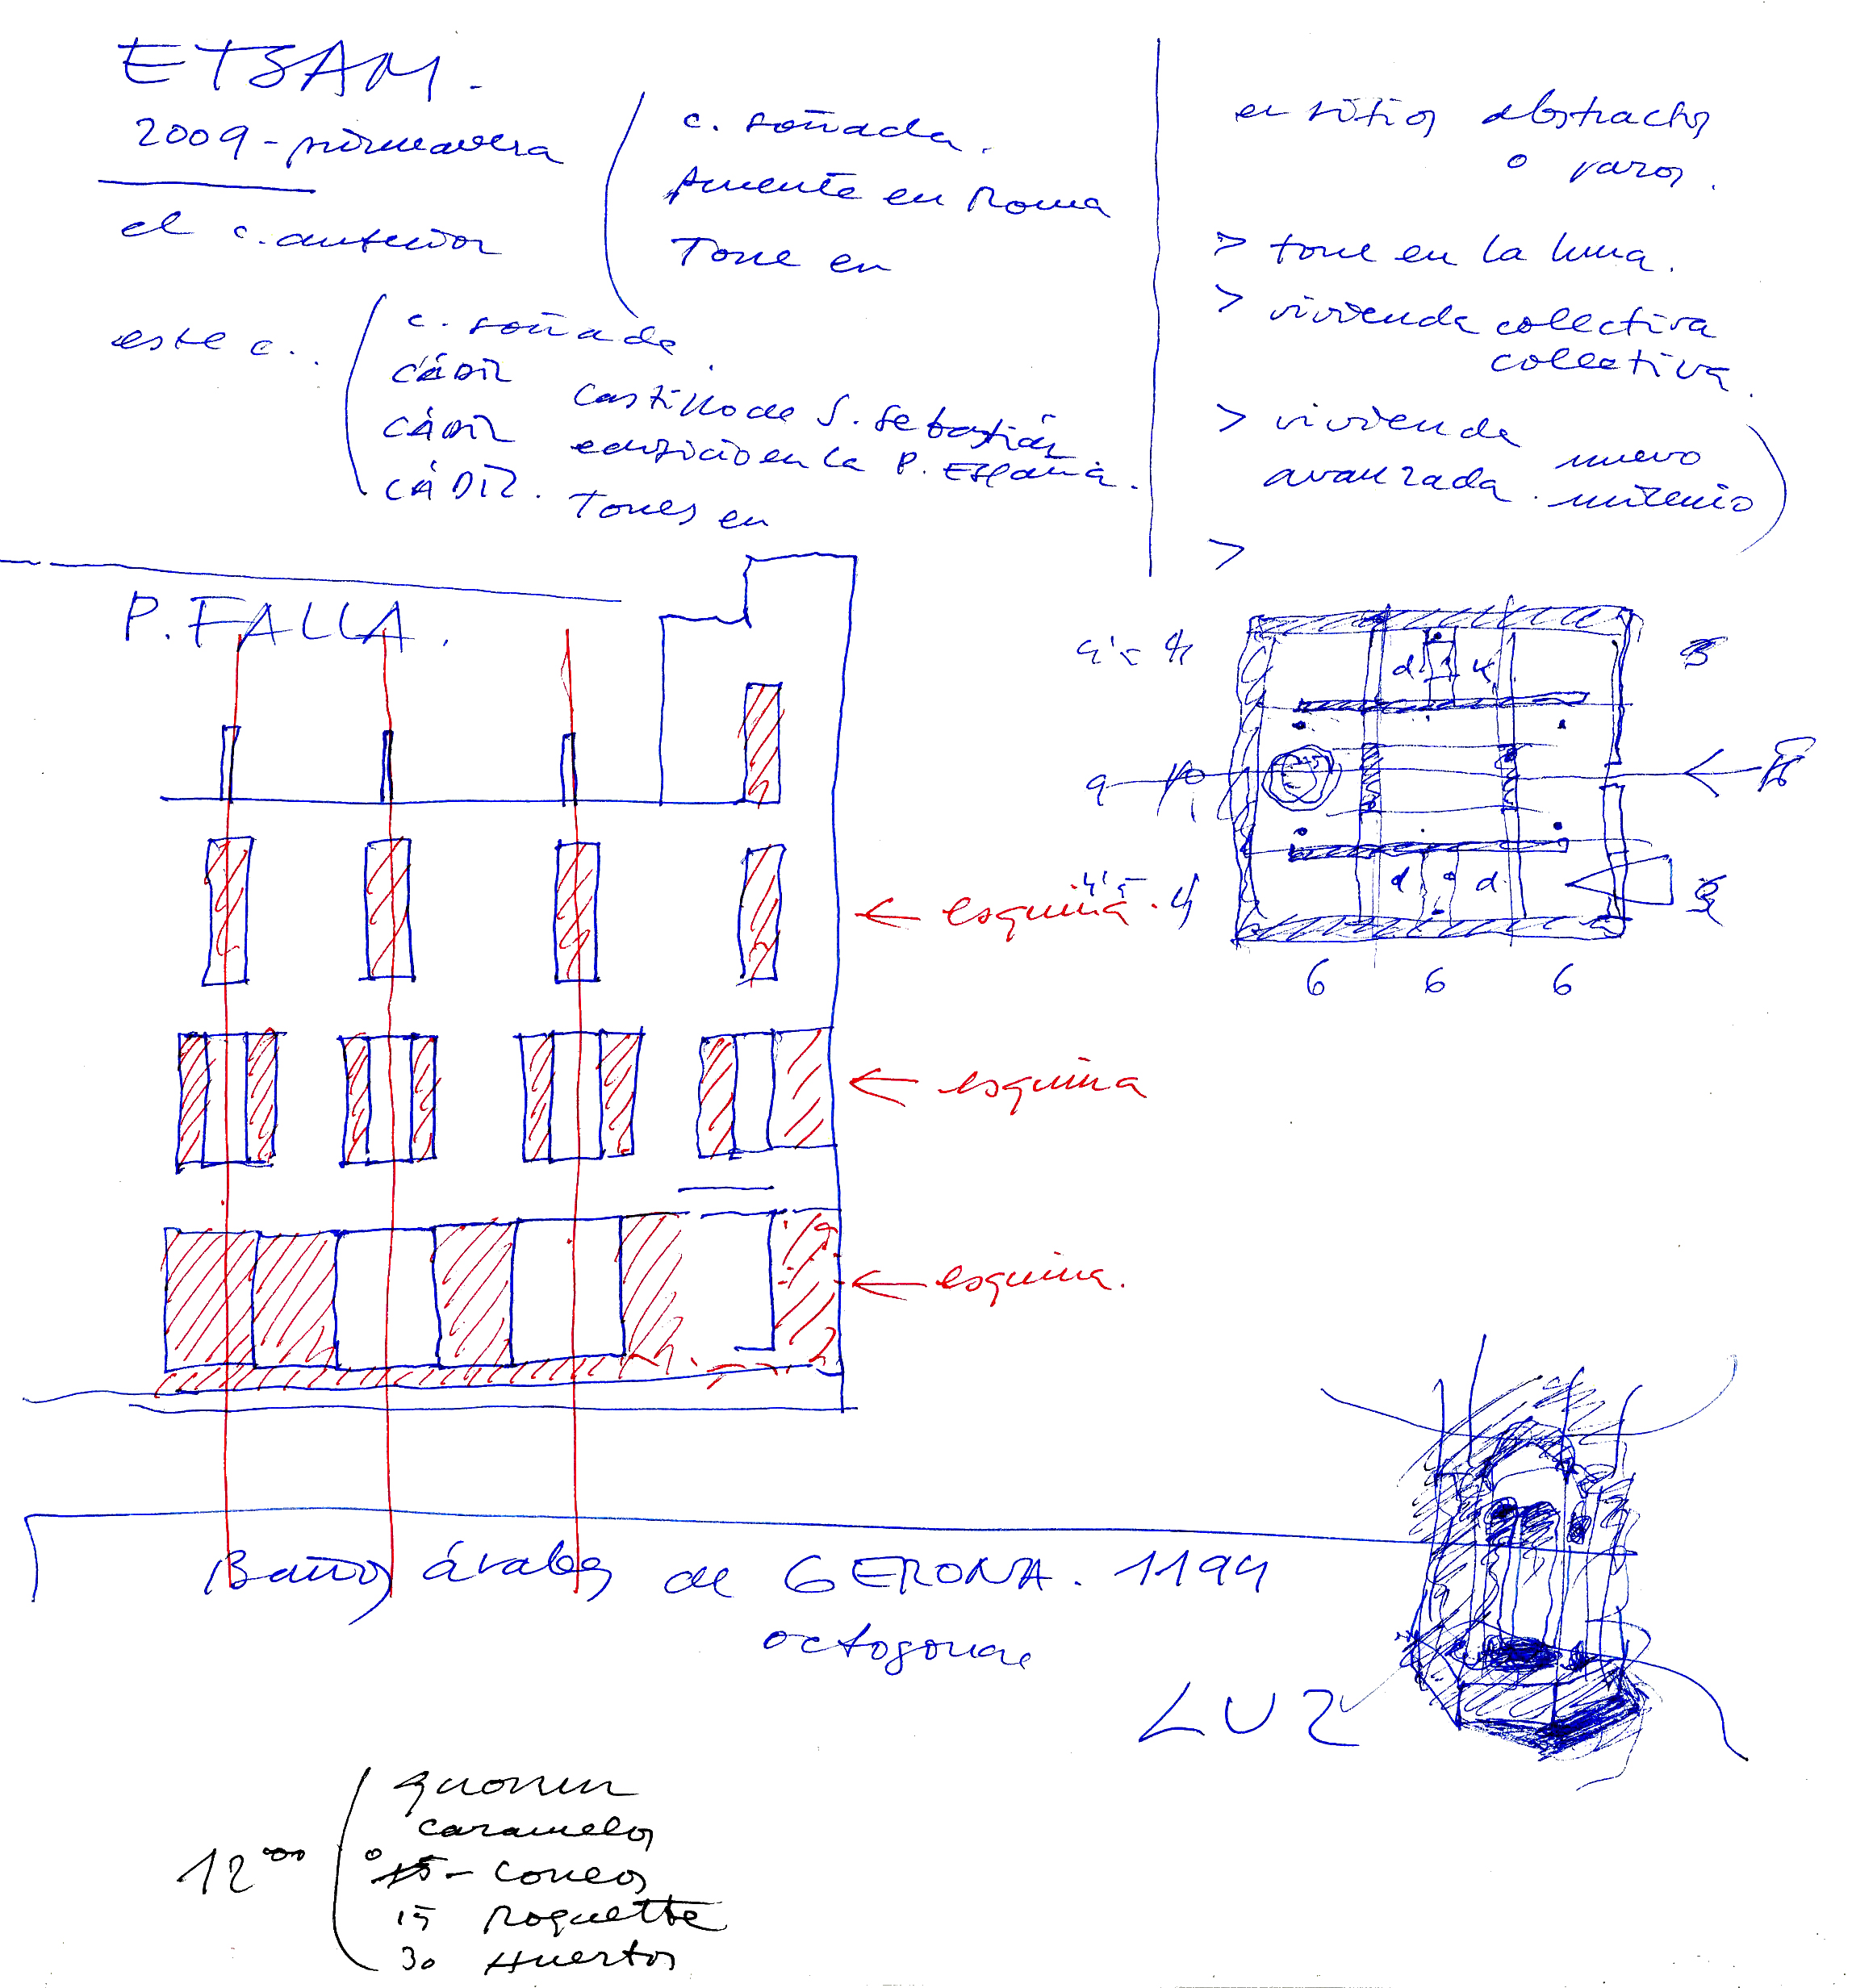 ETSAM.
2009 - primavera
el c. anterior
c. soñada.
Puente en Roma
Torre en
este c..
c. soñada.
CÁDIZ
Castillo de S. Sebastián
CÁDIZ
edificio en la P. España.
CÁDIZ.
Torres en
en sitios abstractos
o raros.
> torre en la luna.
> vivienda colectiva
colectiva.
> vivienda
avanzada. nuevo
milenio
>
P. FALLA.
d
d
d
6 6 6
← esquina
← esquina
← esquina.
Baños árabes de GERONA. 1194
octogonal
LUZ
12ººº
caramelos
15 Roquette
30 Huertos